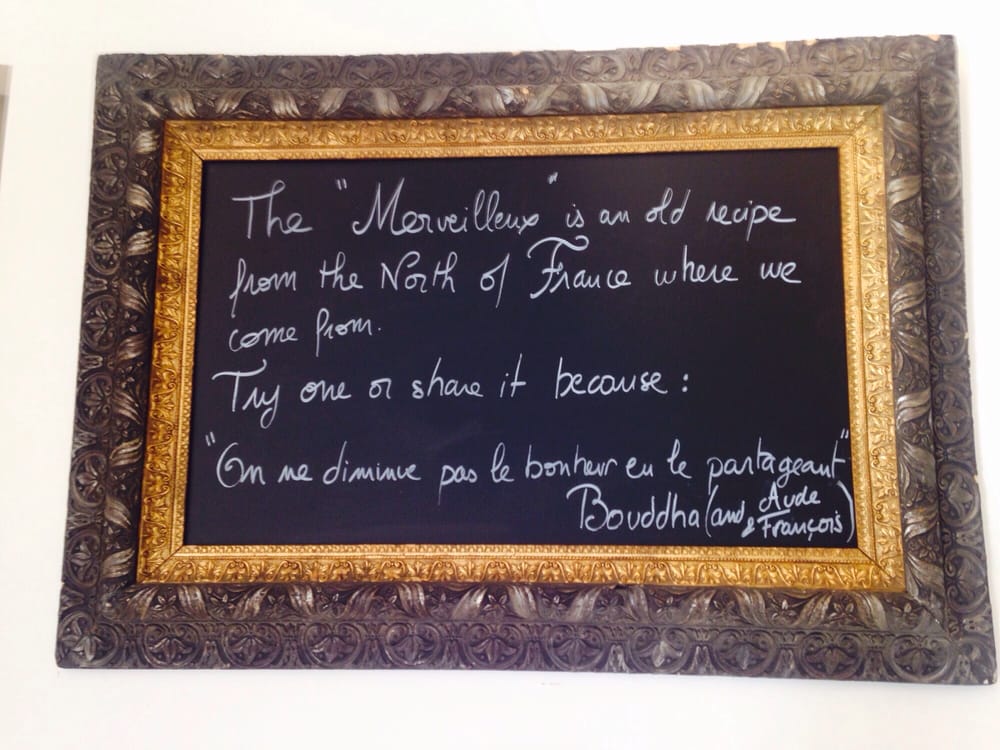 The "Merveilleux" is an old recipe
from the North of France where we
come from.
Try one or share it because :
"On ne diminue pas le bonheur en le partageant"
Bouddha (and Aude
& François)